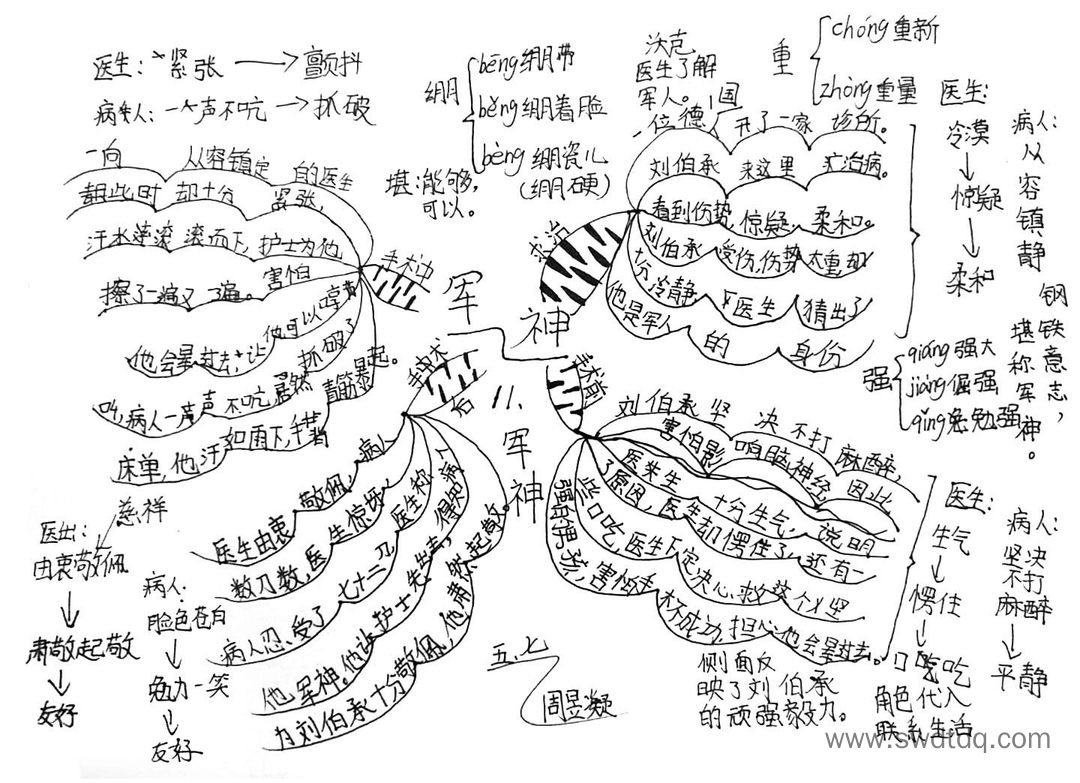 医生：紧张→颤抖
病人：一声不吭→抓破
绷
bēng绷带
běng绷着脸
bèng绷瓷儿
(绷硬)
堪：能够，
可以。
沃克
医生了解
军人。
重
chóng重新
zhòng重量
一向从容镇定的医生
此时却十分紧张，
汗水滚滚而下，护士为他
擦了一遍又一遍。害怕
他会晕过去，让他可以哼
叫，病人一声不吭，居然抓破了
床单，他汗如雨下，手背青筋暴起。
手术中
军神
求治
一位德国人开了一家诊所。
刘伯承来这里治病。
看到伤势，惊疑，柔和。
刘伯承受伤，伤势太重却
十分冷静，医生猜出了
他是军人的身份
医生：
冷漠
↓
惊疑
↓
柔和
病人：
从容镇静
钢铁意志，
堪称军神。
强
qiáng强大
jiàng倔强
qiǎng勉强
手术前
刘伯承坚决不打麻醉，
害怕影响脑神经，因此
医生十分生气，说明
了原因，医生却愣住了，还有一
些口吃，医生下定决心，救这个坚
强的男孩，害怕手术不成功，担心他会晕过去。
侧面反
映了刘伯承
的顽强毅力。
医生：
生气
↓
愣住
↓
口吃
角色代入
联系生活
病人：
坚决
不打
麻醉
↓
平静
手术后
医生由衷敬佩，病人
数刀数，医生惊呀，
病人忍受了七十二刀，医生称
他军神。他让护士先出去，得知病人
为刘伯承十分敬佩，他肃然起敬。
慈祥
由衷敬佩
↓
肃敬起敬
↓
友好
病人：
脸色苍白
↓
勉力一笑
↓
友好
11.
军神
五、七
周昱凝
www.swdtdq.com